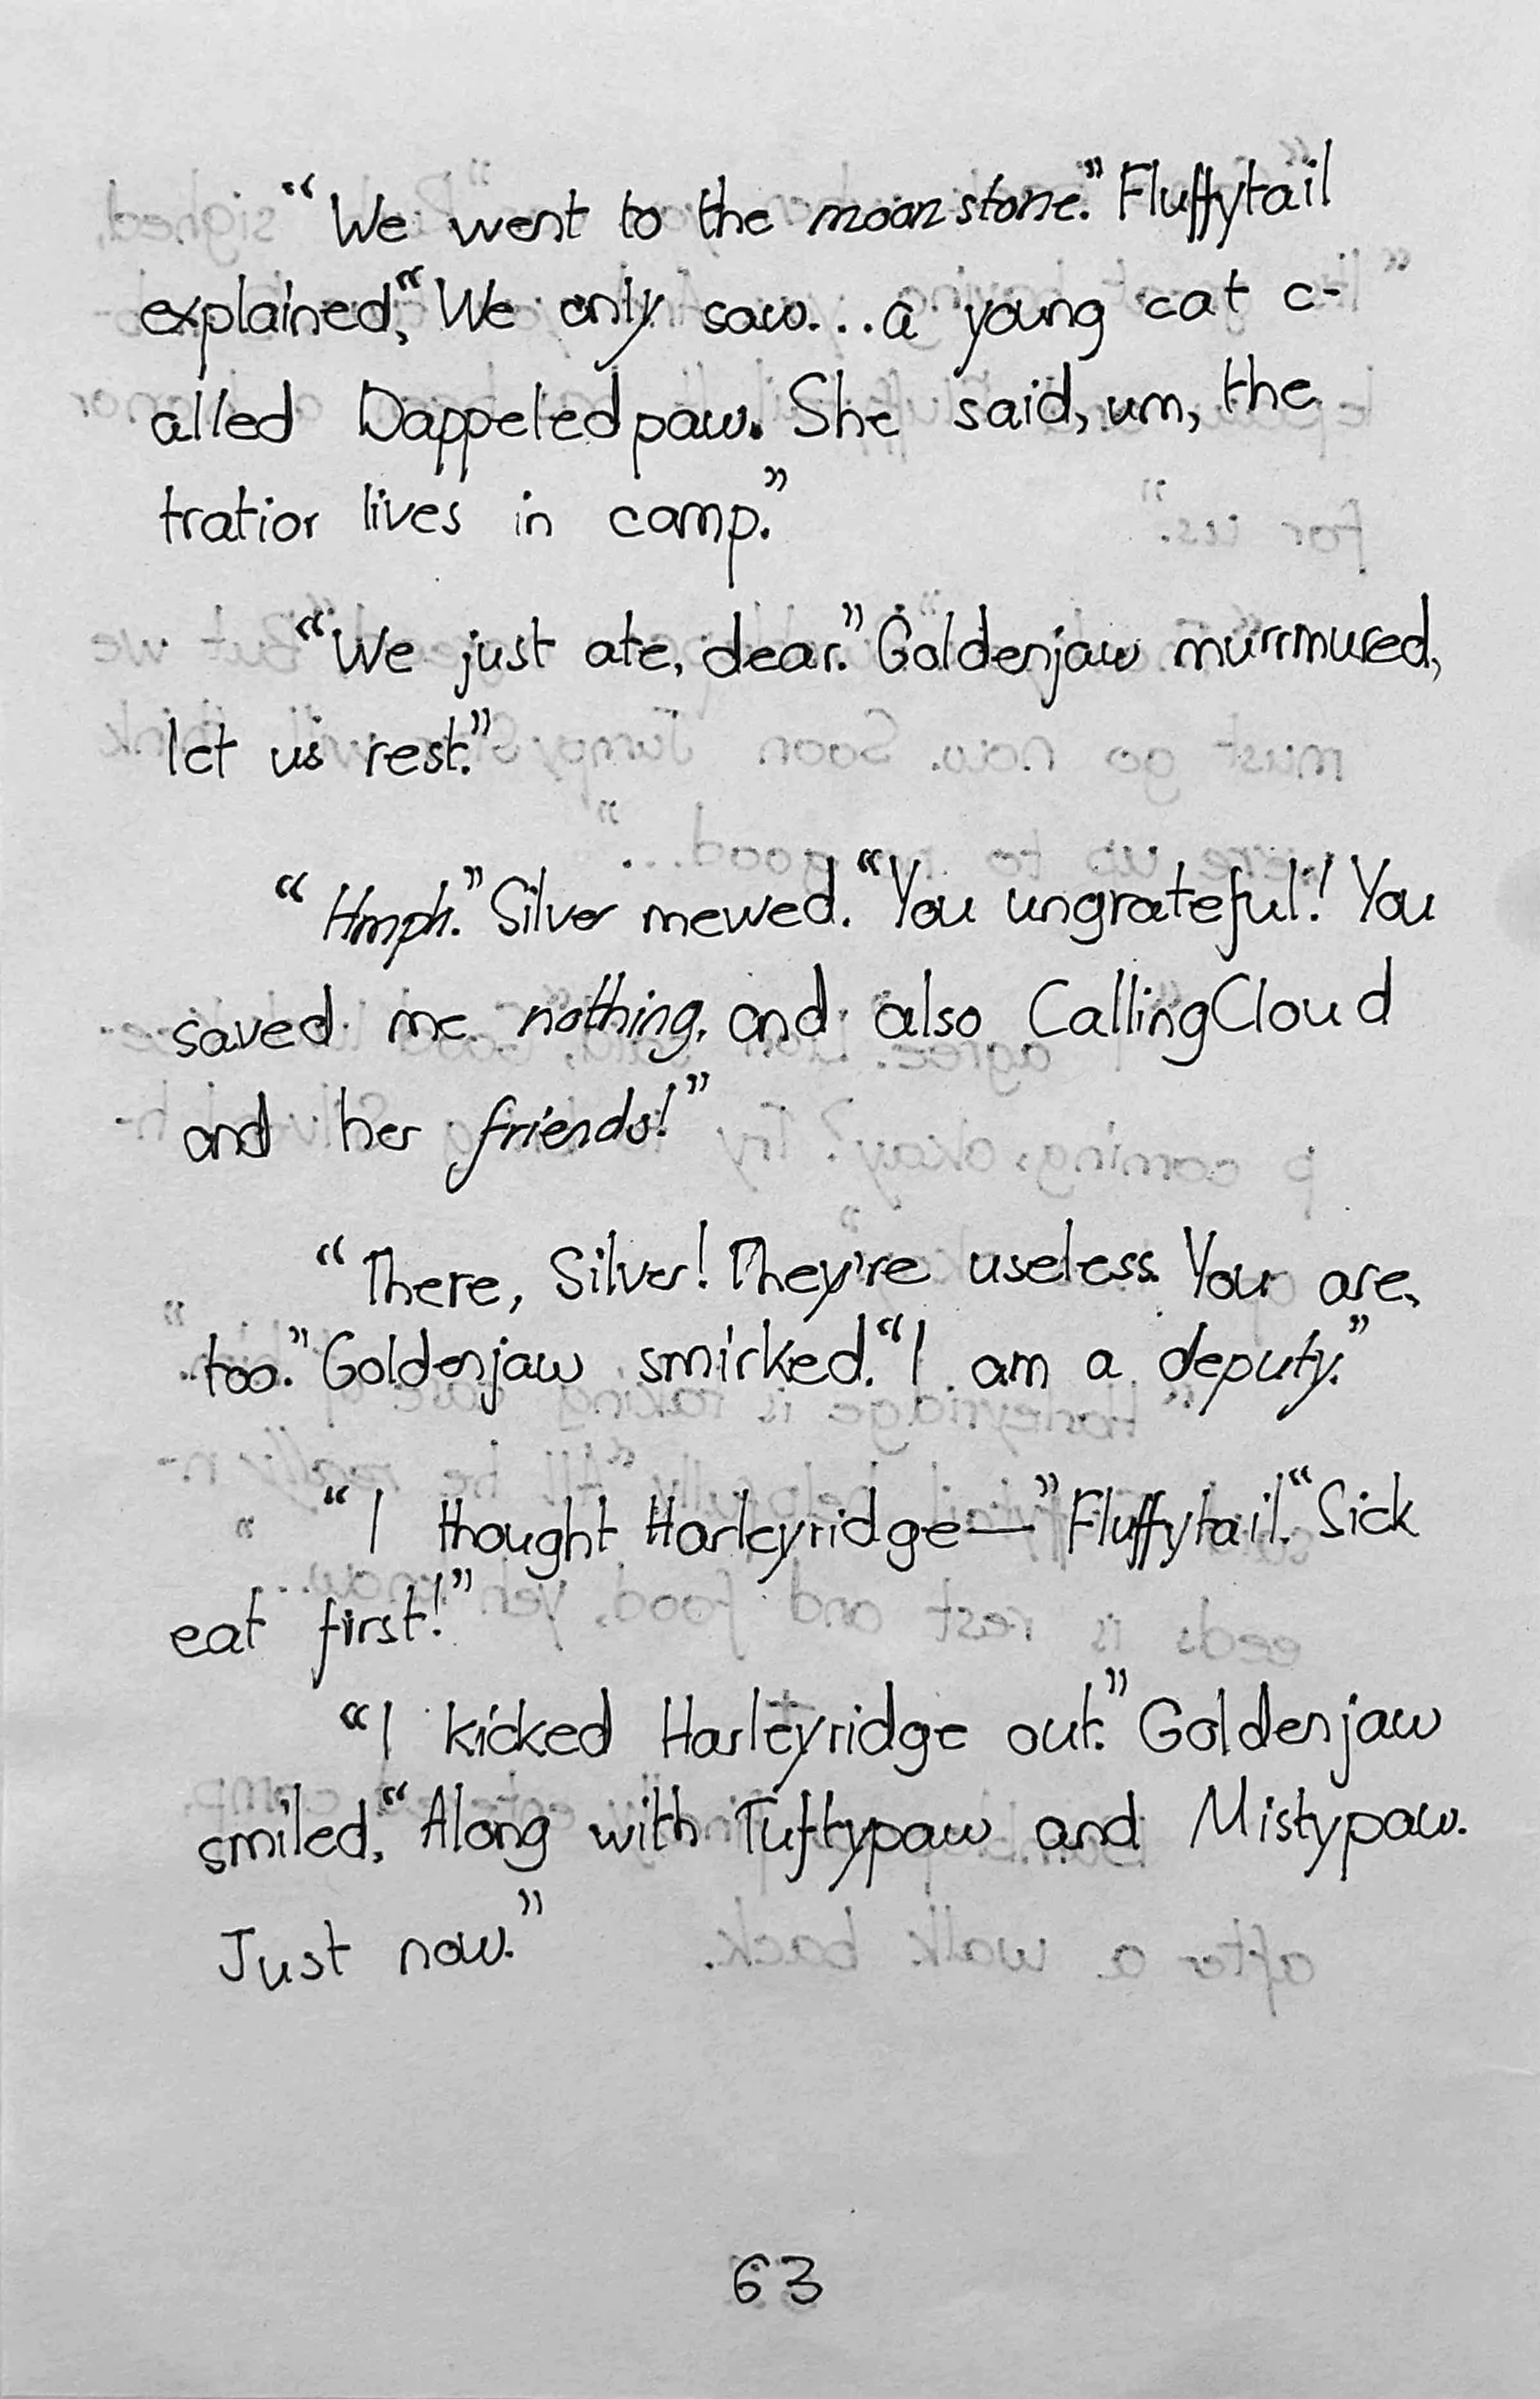 “We went to the moonstone.” Fluffytail
explained, “We only saw...a young cat c-
alled Dappeledpaw. She said, um, the
tratior lives in camp.”
“We just ate, dear.” Goldenjaw murrmured,
let us rest.”
“Hmph.” Silver mewed. “You ungrateful! You
saved me nothing, and also CallingCloud
and her friends!”
“There, Silver! They're useless. You are,
too.” Goldenjaw smirked. “I am a deputy.”
“I thought Harleyridge—” Fluffytail. “Sick
eat first!”
“I kicked Harleyridge out.” Goldenjaw
smiled, “Along with Tuftypaw and Mistypaw.
Just now.”
63